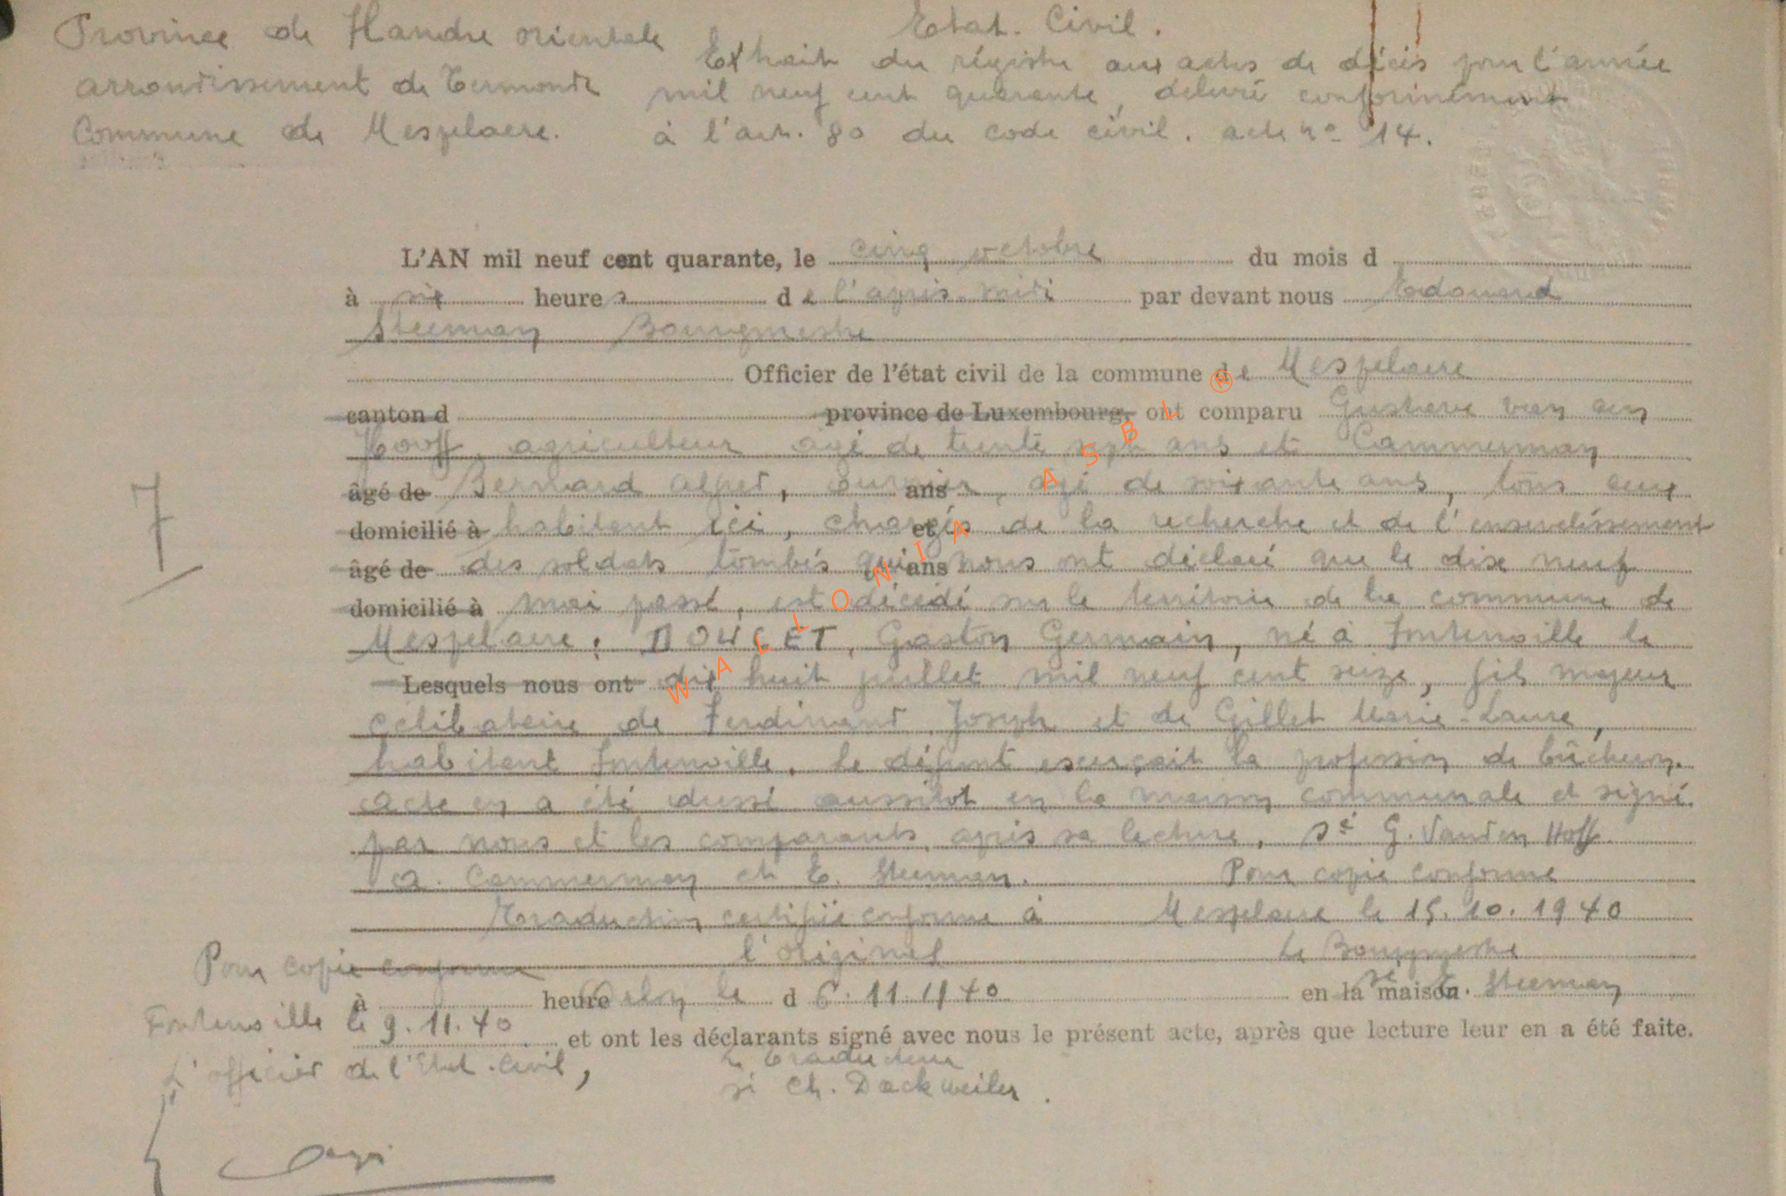 Province de Flandre orientale
Etat. Civil.
arrondissement de Termonde
Extrait du régistre aux actes de décès pour l'année
mil neuf cent quarante, délivré conformément
Commune de Mespelaere.
à l'art. 80 du code civil. acte n° 14.
L'AN mil neuf cent quarante, le cinq octobre du mois d
à six heures de l'après-midi par devant nous Edouard
Steeman Bourgmestre
Officier de l'état civil de la commune de Mespelaere
canton d province de Luxembourg, ont comparu Gustave van den
Hooff agriculteur âgé de trente sept ans et Cammerman
âgé de Bernard Alfred, ouvrier, ans âgé de soixante ans, tous deux
domicilié à habitant ici, chargés et de la recherche et de l'ensevelissement
âgé de des soldats tombés qui ans nous ont déclaré que le dix neuf
domicilié à mai passé, est décédé sur le territoire de la commune de
Mespelaere: DOUCET, Gaston Germain, né à Fontenoille le
Lesquels nous ont dix huit juillet mil neuf cent seize, fils majeur
célibataire de Ferdinand Joseph et de Gillet Marie-Laure,
habitant Fontenoille. Le défunt exerçait la profession de bûcheron.
acte en a été dressé aussitôt en la maison communale et signé
par nous et les comparants, après sa lecture. Sé G. Vanden Hoff
a. Cammerman et E. Steeman. Pour copie conforme
Traduction certifiée conforme à Mespelaere le 15.10.1940
l'original Le Bourgmestre
Pour copie conforme
à heure le d 6.11.1940 en la maison sé E. Steeman
Fontenoille le 9.11.40 et ont les déclarants signé avec nous le présent acte, après que lecture leur en a été faite.
L'officier de l'Etat-Civil,
Le Traducteur
sé Ch. Dackweiler.
7
WALLONIA ASBL ®